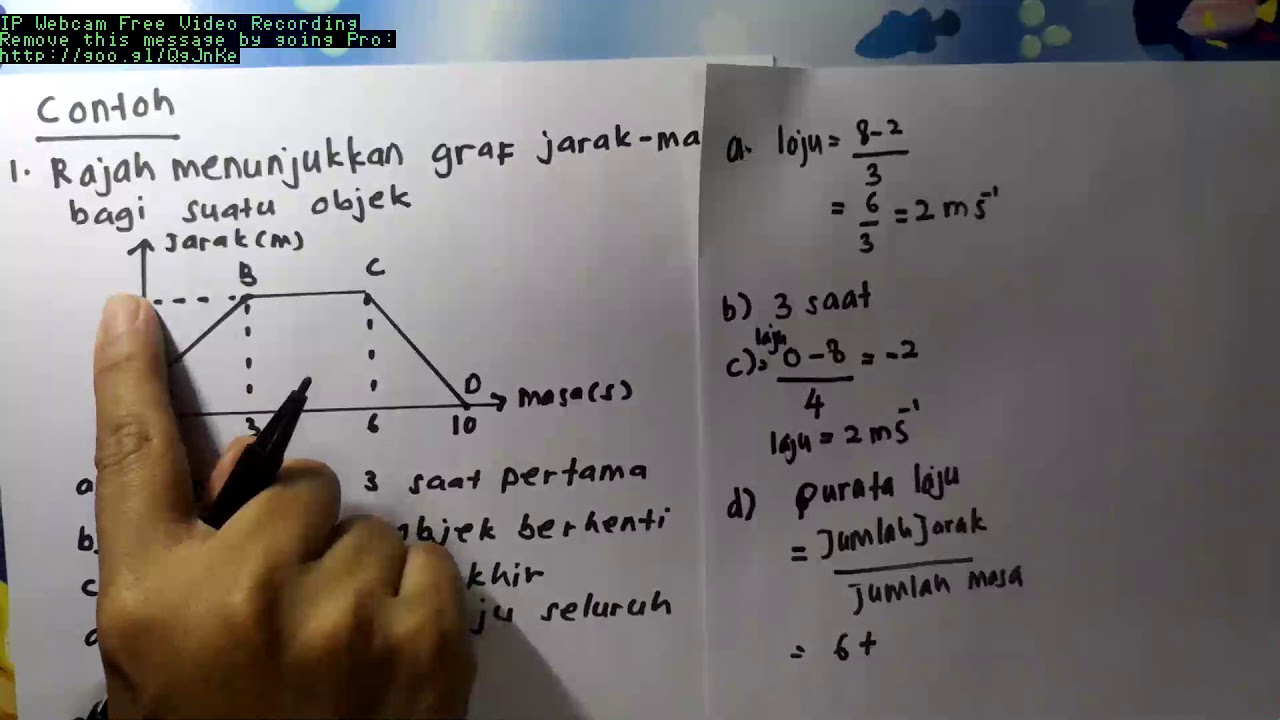 IP Webcam Free Video Recording
Remove this message by going Pro:
http://goo.gl/Q9JnKe
Contoh
1. Rajah menunjukkan graf jarak-ma
bagi suatu objek
Jarak(m)
B
C
D
masa(s)
3
6
10
a
3 saat pertama
b
objek berhenti
c
khir
d
ju seluruh
a. laju = 8-2
3
= 6
3
= 2 ms⁻¹
b) 3 saat
laju
c) = 0-8 = -2
4
laju = 2 ms⁻¹
d) purata laju
= Jumlah Jarak
Jumlah masa
= 6 +